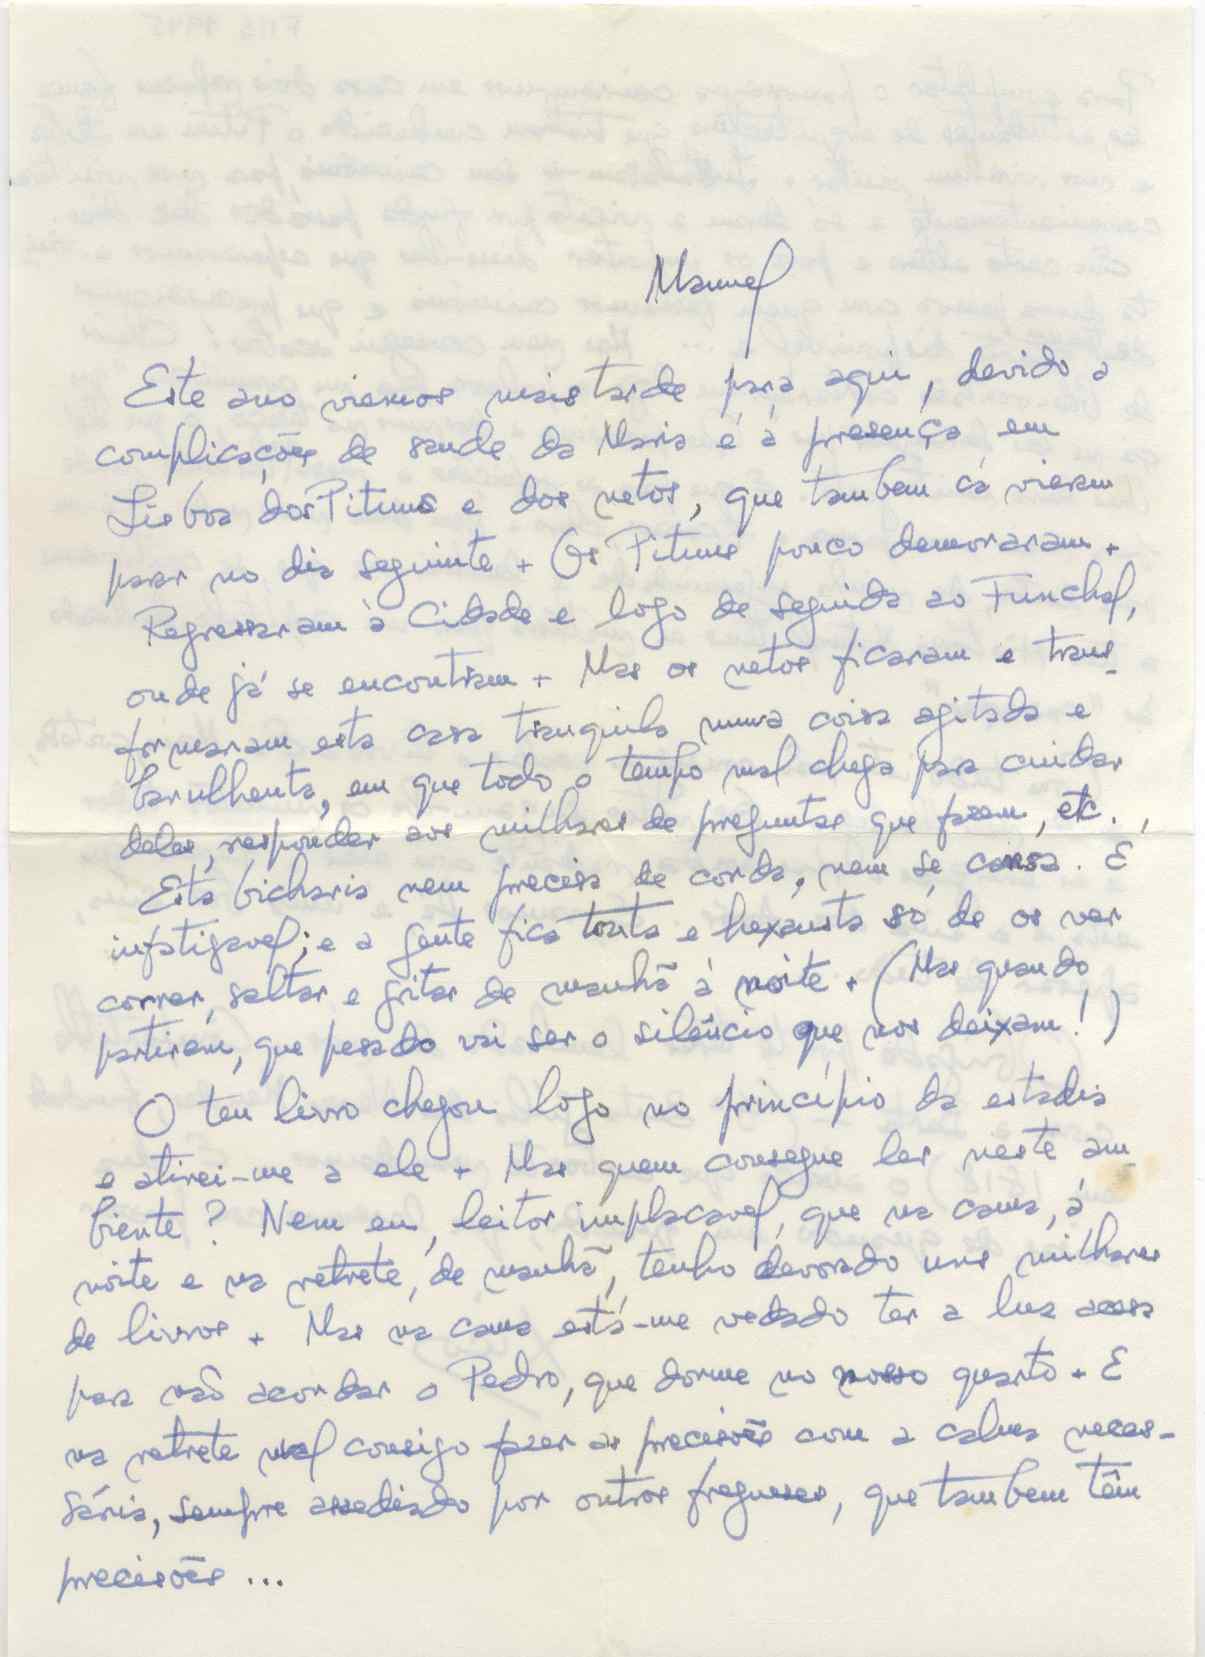 Manuel
Este ano viemos mais tarde para aqui, devido a
complicações de saude da Maria e à presença em
Lisboa dos Pitums e dos netos, que tambem cá vieram
parar no dia seguinte. Os Pitums pouco demoraram.
Regressaram à Cidade e logo de seguida ao Funchal,
onde já se encontram. Mas os netos ficaram e trans-
formaram esta casa tranquila numa coisa agitada e
barulhenta, em que todo o tempo mal chega para cuidar
deles, responder aos milhares de preguntas que fazem, etc.,
Esta bicharia nem precisa de corda, nem se cansa. É
infatigavel; e a gente fica tonta e hexausta só de os ver
correr, saltar e gritar de manhã á noite. (Mas quando
partirem, que pesado vai ser o silêncio que nos deixam!)
O teu livro chegou logo no princípio da estadia
e atirei-me a ele. Mas quem consegue ler neste am-
biente? Nem eu, leitor implacavel, que na cama, á
noite e na retrete, de manhã, tenho devorado uns milhares
de livros. Mas na cama está-me vedado ter a luz acesa
para não acordar o Pedro, que dorme no nosso quarto. E
na retrete mal consigo fazer as precisões com a calma neces-
sária, sempre assediado por outros fregueses, que tambem têm
precisões...